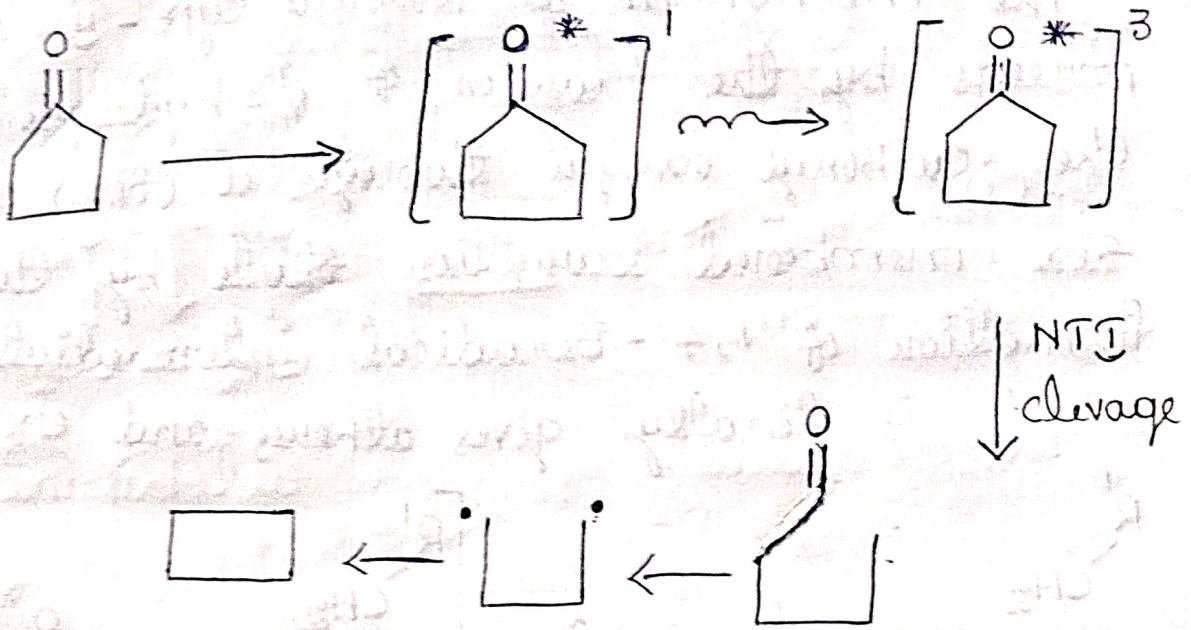 O
O * 1
O * 3
NTI
clevage
O